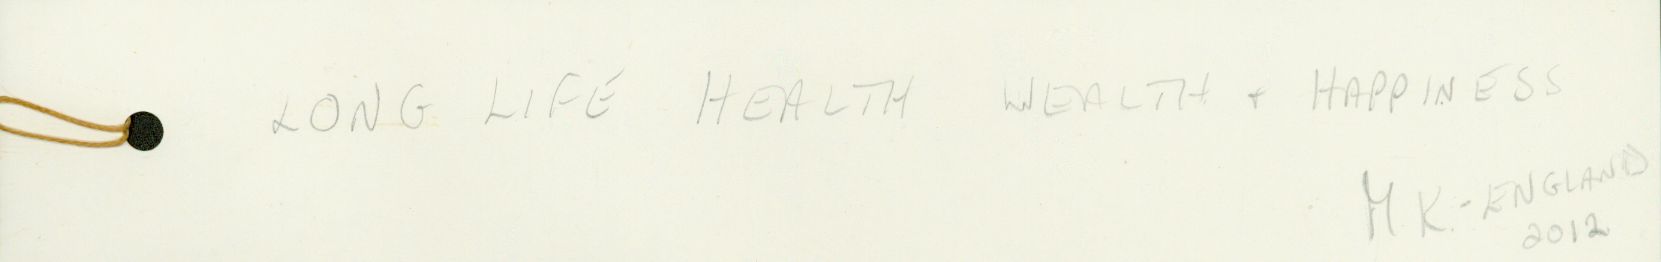 LONG LIFE HEALTH WEALTH + HAPPINESS
M.K. - ENGLAND
2012